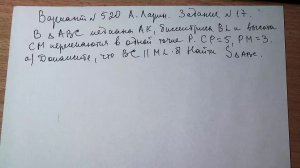 Вариант № 520 А. Ларин. Задание № 17.
В △ABC медиана AK, биссектриса BL и высота
CM пересекаются в одной точке P. CP=5, PM=3.
а) Докажите, что BC ∥ ML. б) Найти S△ABC.